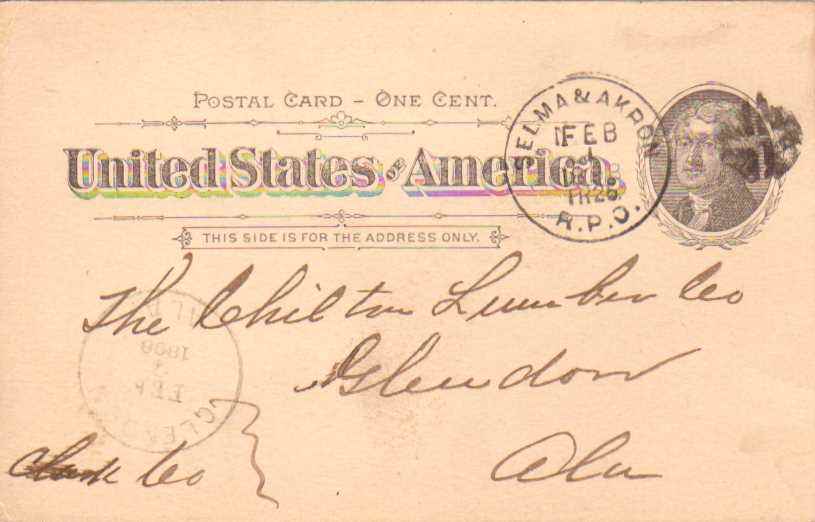 POSTAL CARD – ONE CENT.
United States OF America.
THIS SIDE IS FOR THE ADDRESS ONLY.
SELMA & AKRON
FEB
R.P.O.
The Chilton Lumber Co
Glendon
Ala
Clark Co
FEB
1898